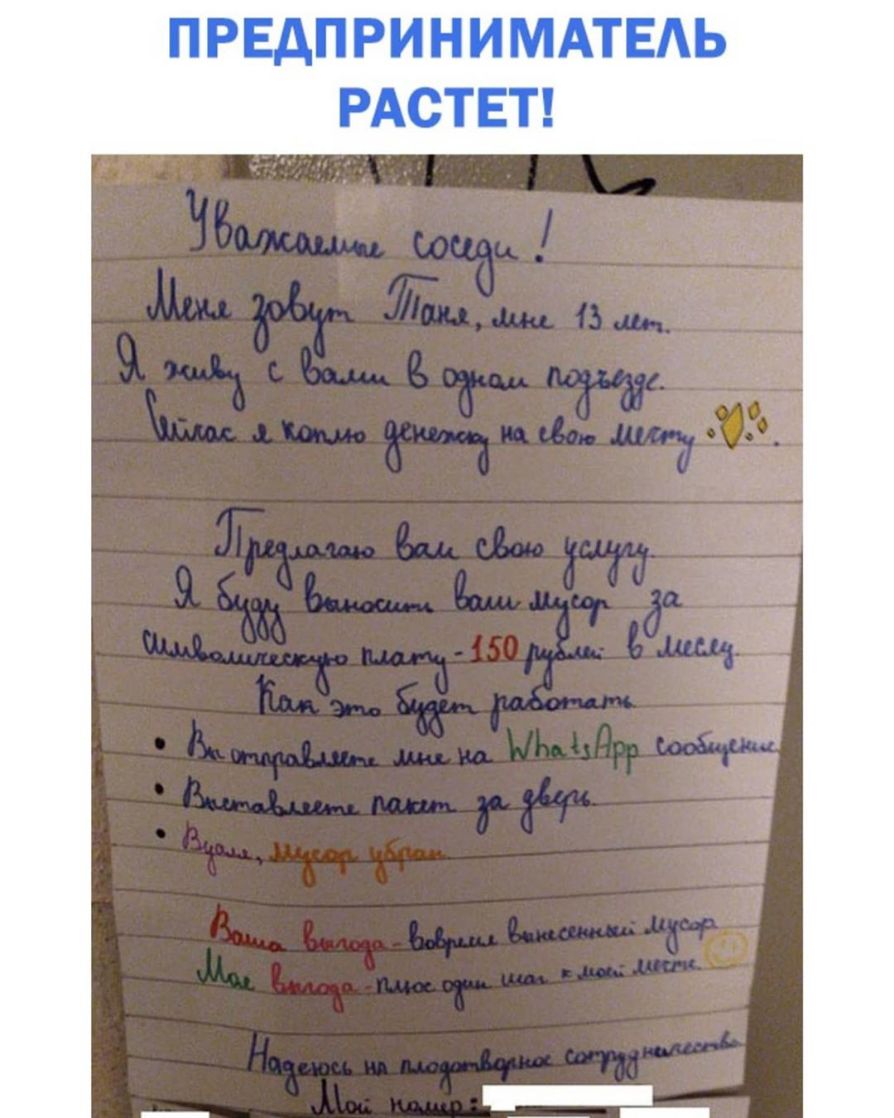 ПРЕДПРИНИМАТЕЛЬ
РАСТЕТ!
Уважаемые соседи!
Меня зовут Таня, мне 13 лет.
Я живу с вами в одном подъезде.
Сейчас я коплю денежку на свою мечту.
Предлагаю вам свою услугу.
Я буду выносить ваш мусор за
символическую плату - 150 рублей в месяц.
Как это будет работать
• Вы отправляете мне на WhatsApp сообщение
• Выставляете пакет за дверь.
• Вуаля, мусор убран
Ваша выгода - вовремя вынесенный мусор
Моя выгода - плюс один шаг к моей мечте.
Надеюсь на плодотворное сотрудничество
Мой номер: